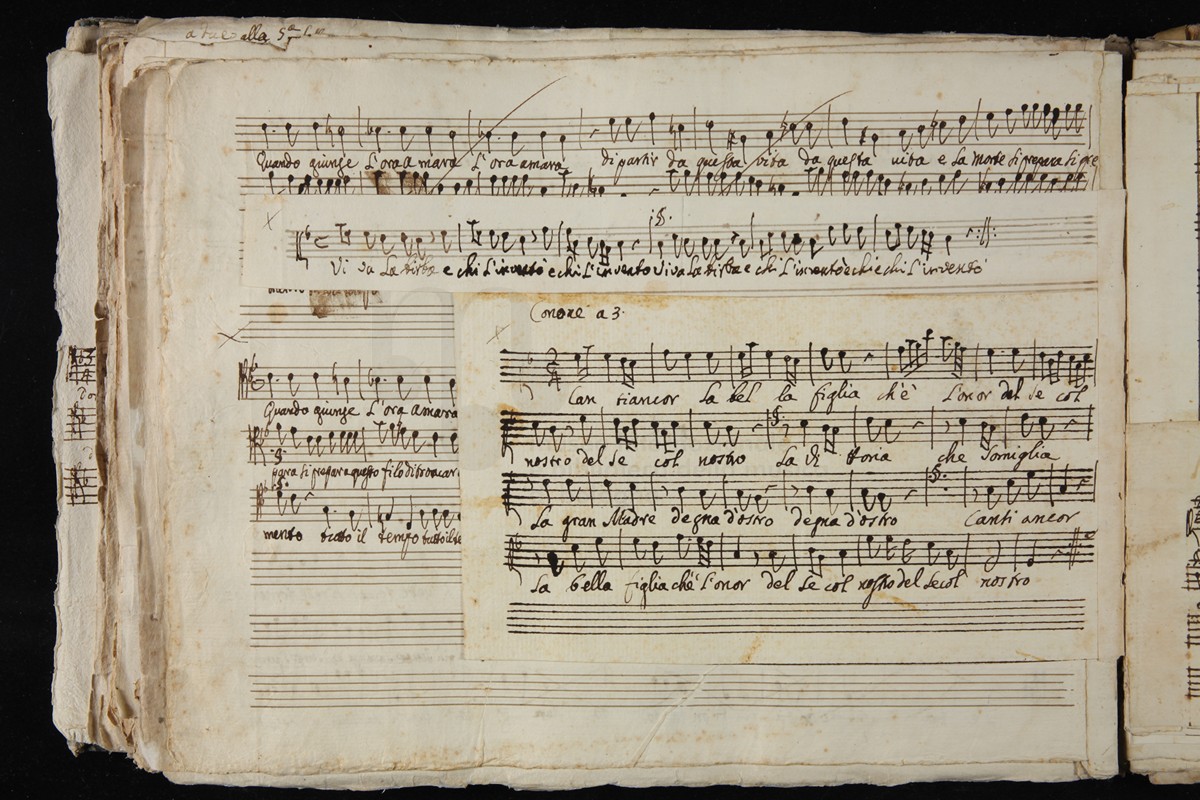 a due alla 5ª
Quando giunge L'ora amara L'ora amara di partir da questa vita da questa vita e La Morte si prepara si pre
Vi va La birba e chi L'inventò e chi L'inventò Viva La birba e chi L'inventò e chi e chi L'inventò
Canone a 3.
Can tiancor La bel la figlia ch'è L'onor del se col
nostro del Se col nostro La Vi ttoria che Somiglia
La gran Madre degna d'ostro degna d'ostro Canti ancor
La bella figlia ch'è L'onor del Se col nostro del Secol nostro
Quando giunge L'ora amara
para si prepara questo filo di troncar
mento tutto il tempo tutto il te